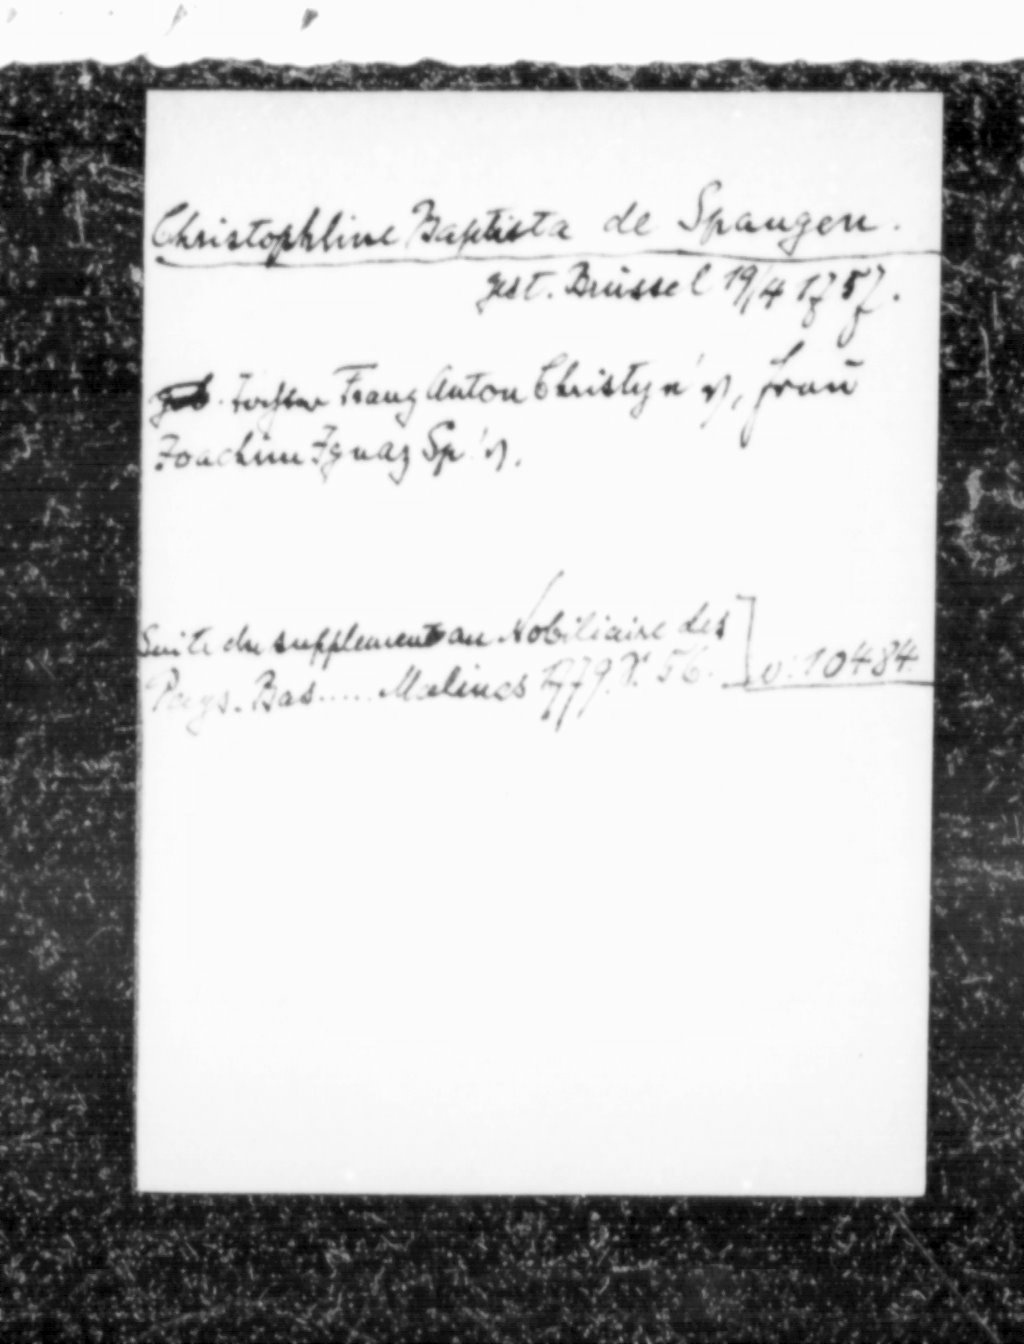 Christophline Baptista de Spangen.
gest. Brüssel 19/4 1757.
Tochter Franz Anton Christyn's, Frau
Joachim Ignaz Sp's.
Suite du supplement au Nobiliaire des
Pays-Bas..... Malines 1779. 56. ] v: 10484